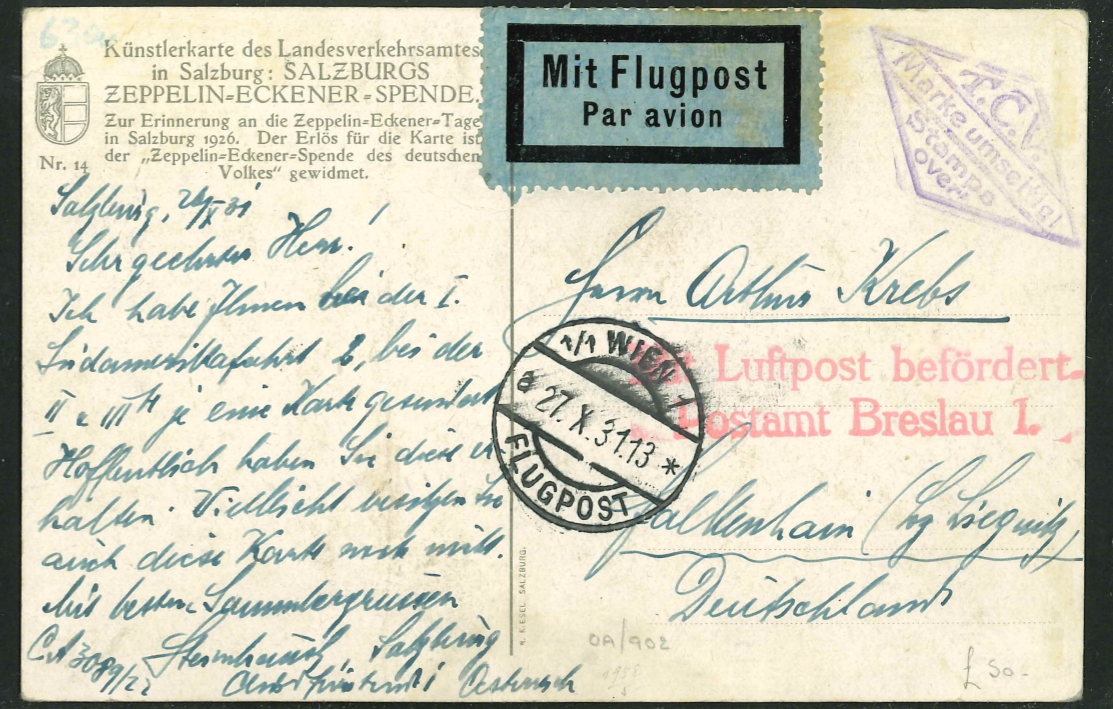 Künstlerkarte des Landesverkehrsamtes
in Salzburg: SALZBURGS
ZEPPELIN=ECKENER=SPENDE.
Zur Erinnerung an die Zeppelin=Eckener=Tage
in Salzburg 1926. Der Erlös für die Karte ist
der „Zeppelin=Eckener=Spende des deutschen
Volkes" gewidmet.
Nr. 14
Mit Flugpost
Par avion
T.C.V.
Marke umseitig!
Stamps
over!
Salzburg, X 31
Sehr geehrter Herr!
Ich habe Ihnen bei der I.
Südamerikafahrt 2, bei der
II u III je eine Karte gesendet
Hoffentlich haben Sie diese er
halten. Vielleicht besitzen Sie
auch diese Karte noch nicht.
Mit besten Sammlergrüssen
Salzburg
C.A 3089/22
Österreich
Herrn Arthur Krebs
Mit Luftpost befördert.
Postamt Breslau 1.
1/1 WIEN 1
a 27.X.31.13 *
FLUGPOST
Falkenhain (Bg Liegnitz)
Deutschland
N. K. ESEL. SALZBURG.
OA/902
£ 50-